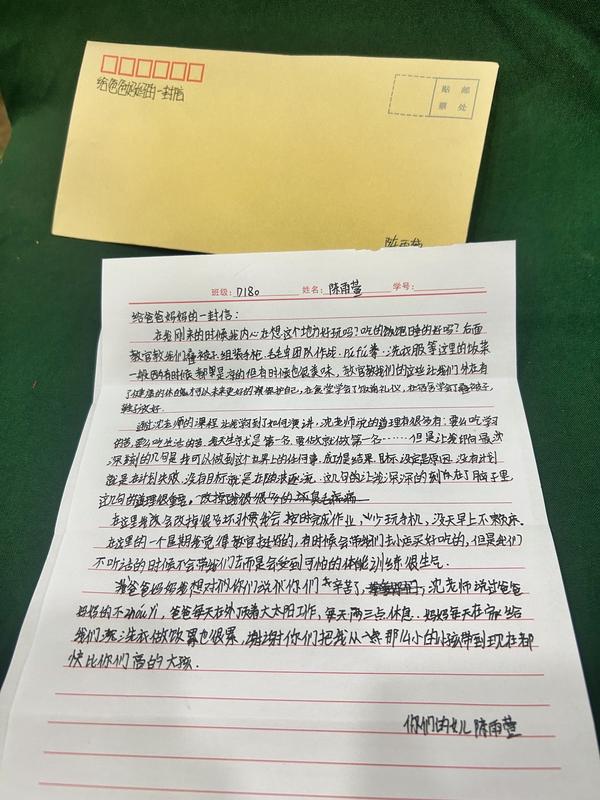 给爸爸妈妈的一封信
贴 邮
票 处
陈雨萱
班级: 0180 姓名: 陈雨萱 学号:
给爸爸妈妈的一封信:
在我刚来的时候我内心在想这个地方好玩吗?吃的饱吗睡的好吗?后面
教官教我们叠被子组装手枪、毛毛虫团队作战、匕首拳、洗衣服等这里的饭菜
一般的有时候都算是淡的但有时候也很美味,教官教我们的这些让我们外在有
了健康的体魄可以未来更好的保护自己,在食堂学会了饭前礼仪,在宿舍学会了叠被子,
鞋子放好.
通过沈老师的课程让我学到了如何演讲,沈老师说的道理有很多有:要么吃学习
的苦,要么吃生活的苦.考大学就是第一名.要做就做第一名……但是让我印象最
深刻的几句是我可以做到这个世界上的任何事,成功是结果,目标设定是原因,没有计划
就是在计划失败,没有目标就是在随波逐流.这几句话让我深深的刻在了脑子里,
这几句的道理很重
在这里我会改掉很多坏习惯我会按时完成作业,少玩手机,
在这里的一个星期我觉得教官挺好的,有时候会带我们去小卖买好吃的,但是我们
不听话的时候不会带我们去而是会受到可怕的体能训练很生气.
爸爸妈妈我想对你们说你们辛苦了,沈老师说过爸爸
妈妈的不róng yì,爸爸每天在外顶着大太阳工作,每天两三点休息.妈妈每天在家给
我们洗衣做饭累也很累,谢谢你们把我从那么小的小孩带到现在都
快比你们高的大孩.
你们的女儿 陈雨萱